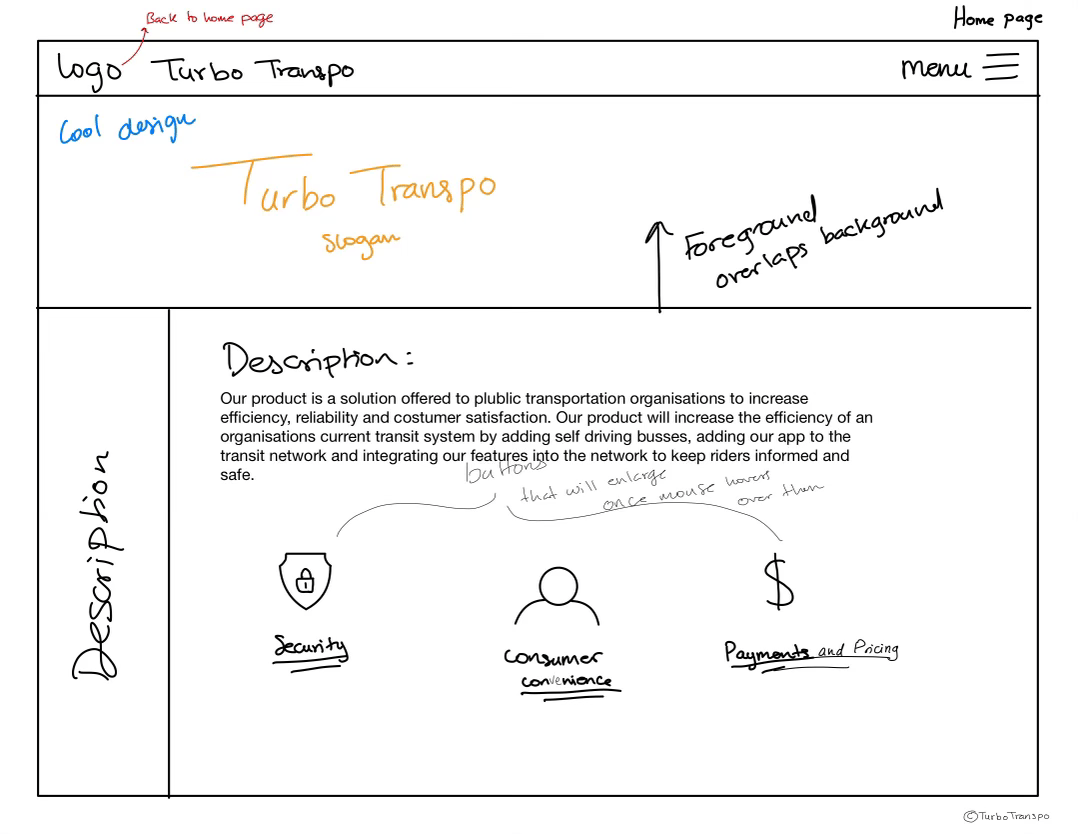 Back to home page
Home page
Logo Turbo Transpo
Menu
Cool design
Turbo Transpo
slogan
Foreground
overlaps background
Description:
Our product is a solution offered to plublic transportation organisations to increase
efficiency, reliability and costumer satisfaction. Our product will increase the efficiency of an
organisations current transit system by adding self driving busses, adding our app to the
transit network and integrating our features into the network to keep riders informed and
safe.
buttons
that will enlarge
once mouse hovers
over them
Description
$
Security
Consumer
convenience
Payments and Pricing
©TurboTranspo